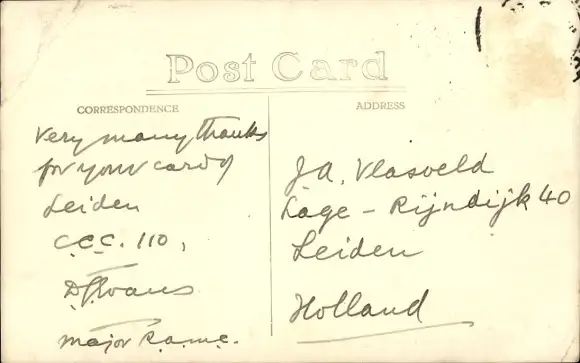 Post Card
CORRESPONDENCE
ADDRESS
Very many thanks
for your card of
Leiden
C.C.C. 110,
Major R.A.M.C.
J.A. Vlasveld
Lage - Rijndijk 40
Leiden
Holland